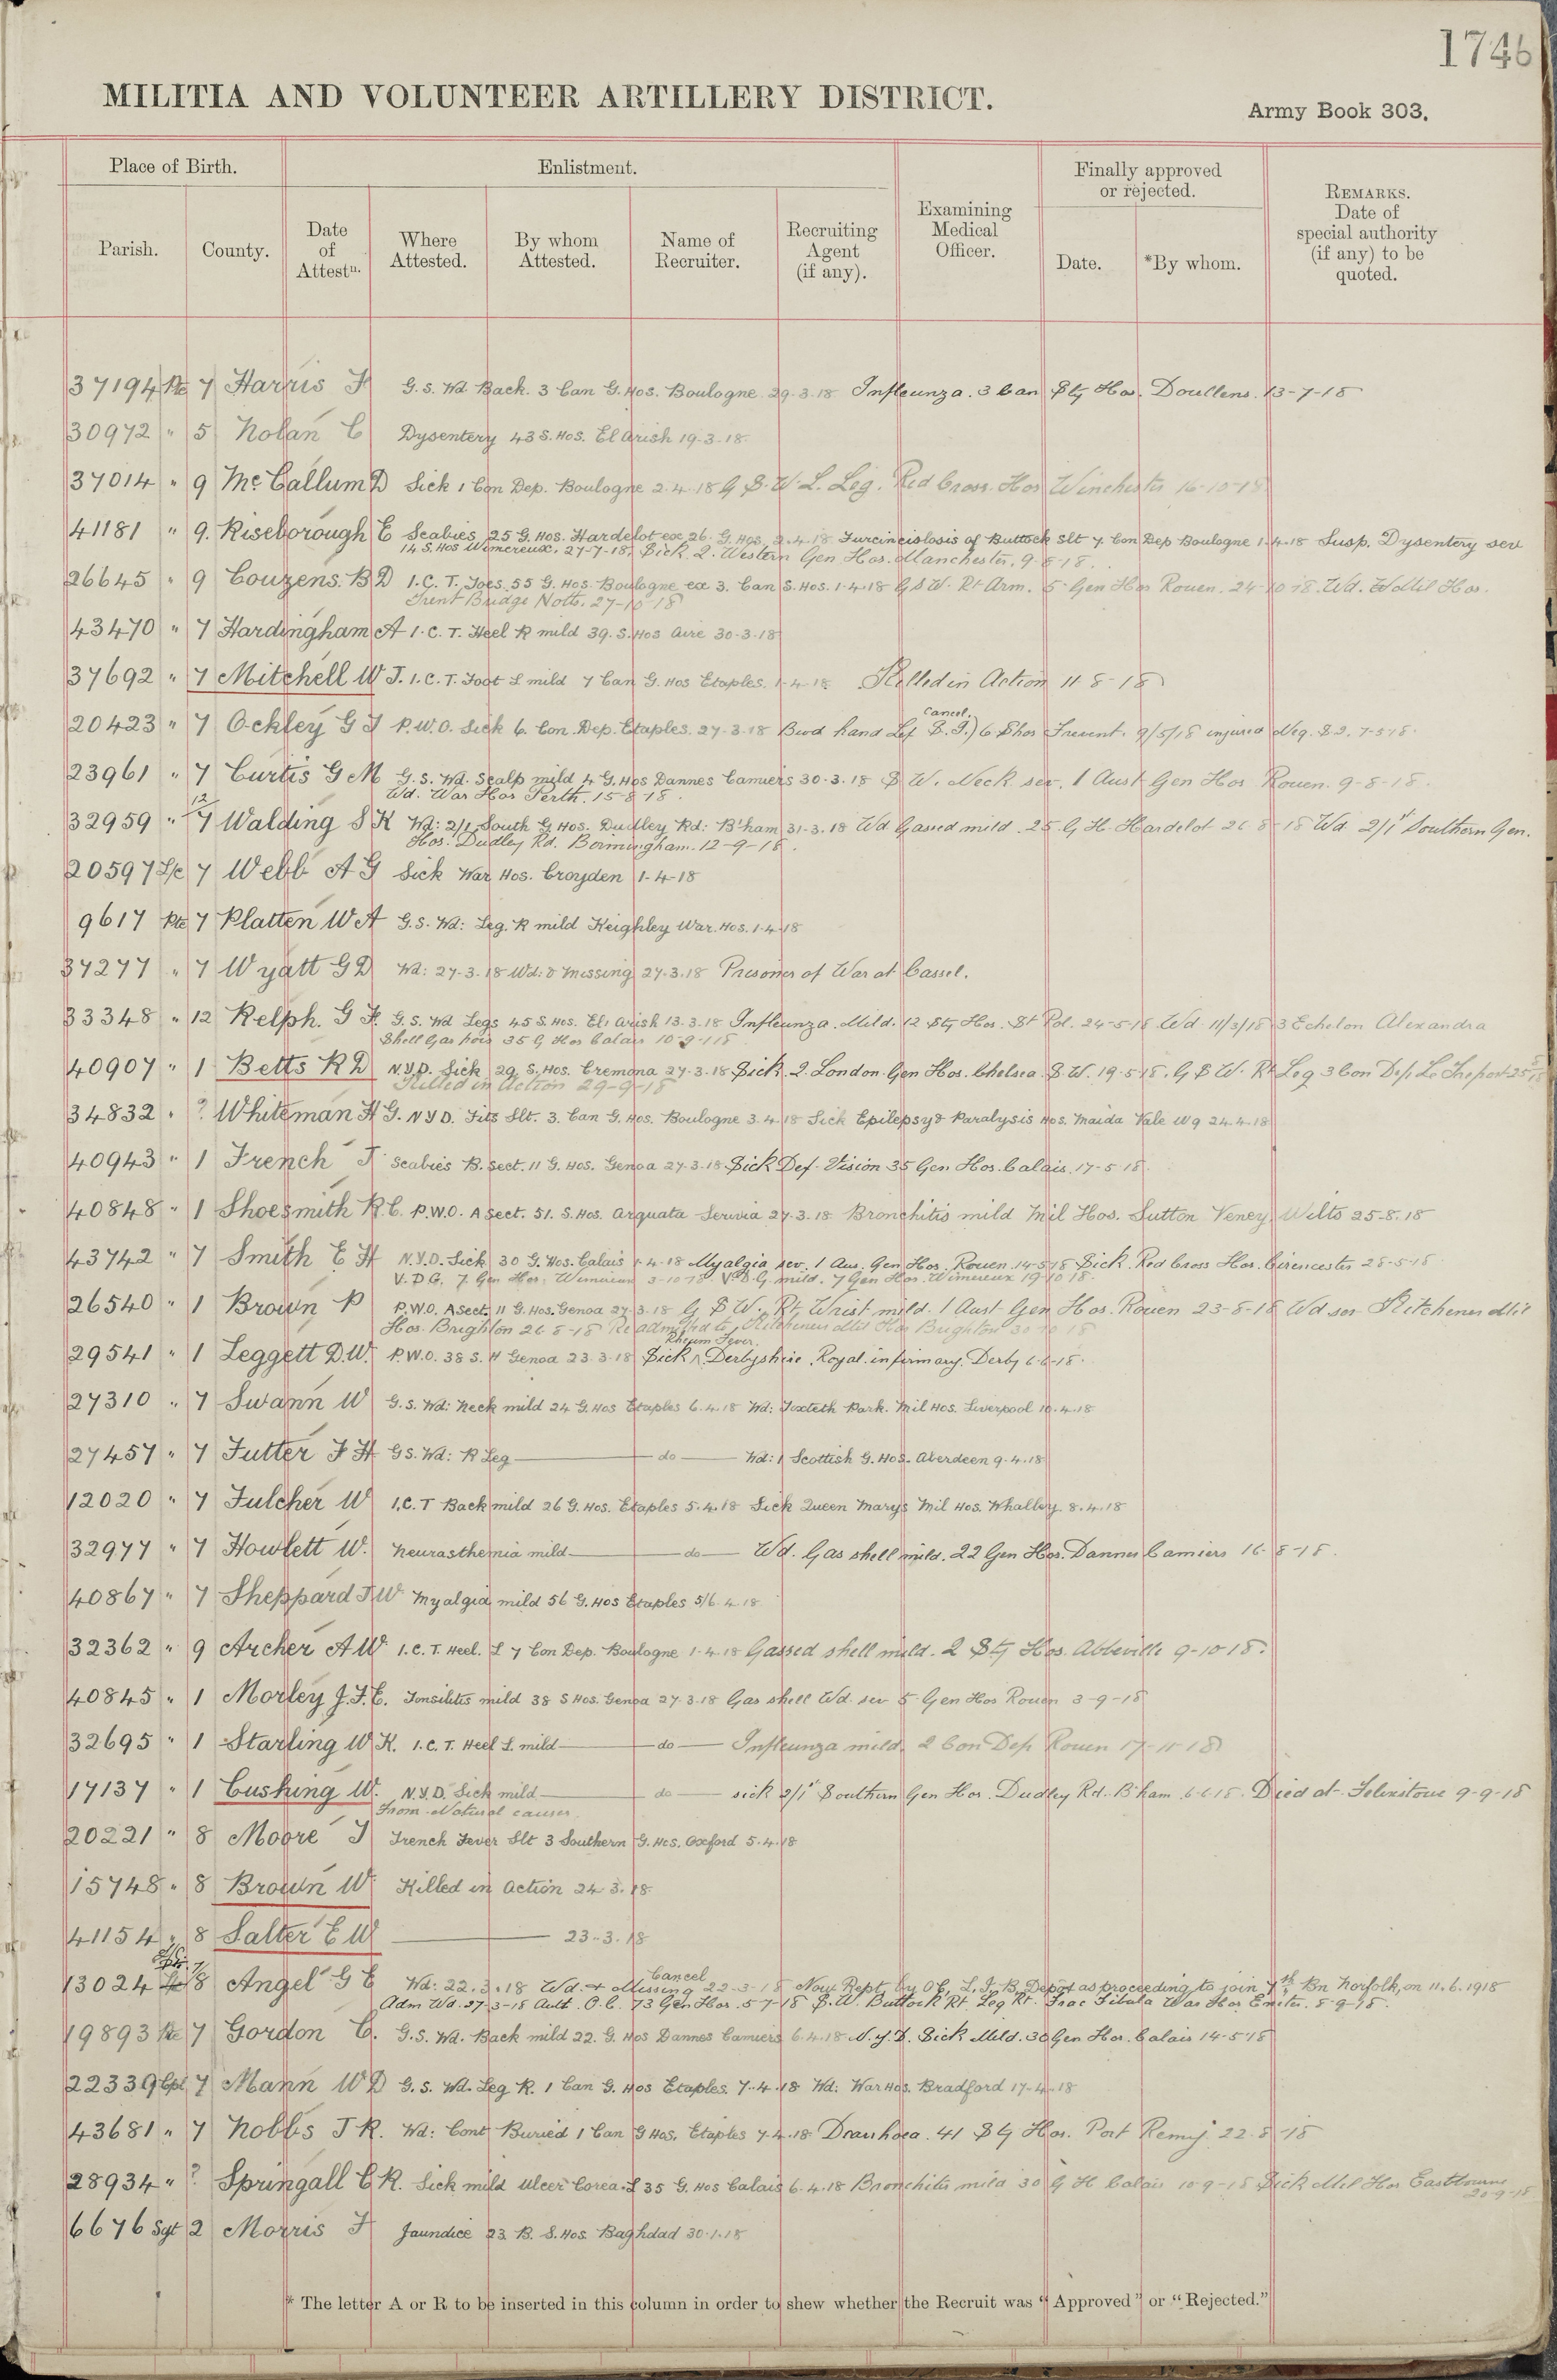 1746
MILITIA AND VOLUNTEER ARTILLERY DISTRICT.
Army Book 303.
Place of Birth.
Enlistment.
Finally approved
or rejected.
Parish.
County.
Date
of
Attestn.
Where
Attested.
By whom
Attested.
Name of
Recruiter.
Recruiting
Agent
(if any).
Examining
Medical
Officer.
Date.
*By whom.
REMARKS.
Date of
special authority
(if any) to be
quoted.
37194 Pte 7 Harris F G.S. Wd Back. 3 Can G. Hos. Boulogne 29-3-18 Infleunza. 3 Can Sty Hos. Doullens. 13-7-18
30972 " 5 Nolan C Dysentery 43 S. Hos. El Arish 19-3-18
37014 " 9 McCallum D Sick 1 Con Dep. Boulogne 2.4.18 G.S.W. L. Leg. Red Cross. Hos Winchester 16-10-18
41181 " 9. Riseborough E Scabies 25 G. Hos. Hardelot ex 26. G. Hos. 2.4.18 of Buttock Slt 7 Con Dep Boulogne 1.4.18 Susp. Dysentery sev
14 S. Hos Wimereux. 27-7-18. Sick. 2. Western Gen Hos. Manchester. 9-8-18.
26645 " 9 Couzens. B D I.C.T. Toes. 55 G. Hos. Boulogne ex 3. Can S. Hos. 1-4-18 G S W. Rt Arm. 5 Gen Hos Rouen. 24-10-18. Wd. Mil Hos.
Trent Bridge Notts. 27-10-18
43470 " 7 Hardingham A I.C.T. Heel R mild 39. S. Hos Aire 30-3-18
37692 " 7 Mitchell W J. I.C.T. Foot L mild 7 Can G. Hos Etaples. 1-4-18. Killed in Action 11-8-18
Cancel.
20423 " 7 Ockley G J P.W.O. Sick 6. Con. Dep. Etaples. 27-3-18 hand Lef S.I.) 6 S hos Frevent. 9/5/18 injured Neg. S.I. 7-5-18.
23961 " 7 Curtis G M G.S. Wd. Scalp mild 4 G. Hos Dannes Camiers 30-3-18 S W. Neck sev. 1 Aust Gen Hos Rouen. 9-8-18.
Wd. War Hos Perth. 15-8-18.
32959 " 12/7 Walding S K Wd: 2/1 South G. Hos. Dudley Rd: B'ham 31-3-18 Wd Gassed mild. 25. G H. Hardelot 26-8-18 Wd 2/1st Southern Gen.
Hos. Dudley Rd. Birmingham. 12-9-18.
20597 L/c 7 Webb A G Sick War Hos. Croyden 1-4-18
9617 Pte 7 Platten W A G.S. Wd: Leg. R mild Keighley War. Hos. 1-4-18
37277 " 7 Wyatt G D Wd: 27-3-18 Wd: & Missing 27-3-18 Prisoner of War at Cassel.
33348 " 12 Relph. G F. G.S. Wd Legs 45 S. Hos. El. Arish 13-3-18 Infleunza. Mild. 12 Sty Hos. St Pol. 24-5-18 Wd 11/3/18 3 Echelon Alexandra
Shell Gas pois 35 G Hos Calais 10-9-18
40907 " 1 Betts R D N.Y.D. Sick 29. S. Hos. Cremona 27-3-18 Sick. 2. London Gen Hos. Chelsea. S W. 19-5-18. G S W. Rt Leg 3 Con Dep Le Treport 25
Killed in Action 29-9-18
34832 " ? Whiteman H G. N Y D. Fits Slt. 3. Can G. Hos. Boulogne 3.4.18 Sick Epilepsy & Paralysis Hos. Maida Vale W9 24.4.18
40943 " 1 French J Scabies B. Sect. 11 G. Hos. Genoa 27-3-18 Sick Def. Vision 35 Gen Hos. Calais. 17-5-18.
40848 " 1 Shoesmith R.C. P.W.O. A Sect. 51. S. Hos. Arquata Scrivia 27-3-18 Bronchitis mild Mil Hos. Sutton Veney Wilts 25-8-18
43742 " 7 Smith E H N.Y.D. Sick 30 G. Hos. Calais 1-4-18 Myalgia sev. 1 Aus. Gen Hos. Rouen. 14-5-18 Sick. Red Cross Hos. Cirencester 28-5-18
V.D.G. 7 Gen Hos. Wimereux 3-10-18 V.D.G. mild. 7 Gen Hos. Wimereux 19-10-18.
26540 " 1 Brown P P.W.O. A Sect. 11 G. Hos. Genoa 27-3-18 G S W. Rt Wrist mild. 1 Aust Gen Hos. Rouen 23-8-18 Wd sev Kitchener Mil
Hos. Brighton 26-8-18 Readmitted to Kitcheners Mil Hos Brighton 30-10-18
Rheum Fever.
29541 " 1 Leggett D.W. P.W.O. 38 S. H Genoa 23-3-18 Sick ^ Derbyshire Royal. infirmary. Derby 6-6-18.
27310 " 7 Swann W G.S. Wd: Neck mild 24 G. Hos Etaples 6.4.18 Wd: Toxteth Park. Mil Hos. Liverpool 10.4.18
27457 " 7 Futter F H GS. Wd: R Leg —— do —— Wd: 1 Scottish G. Hos. Aberdeen 9.4.18
12020 " 7 Fulcher W I.C.T Back mild 26 G. Hos. Etaples 5.4.18 Sick Queen Marys Mil Hos. Whalley 8.4.18
32977 " 7 Howlett W. Neurasthemia mild —— do —— Wd. Gas shell mild. 22 Gen Hos. Dannes Camiers 16-8-18.
40867 " 7 Sheppard J W Myalgia mild 56 G. Hos Etaples 5/6.4.18
32362 " 9 Archer A W I.C.T. Heel. L 7 Con Dep. Boulogne 1-4-18 Gassed shell mild. 2 Sty Hos. Abbeville 9-10-18.
40845 " 1 Morley J.F.E. Tonsilitis mild 38 S Hos. Genoa 27-3-18 Gas shell Wd. sev 5 Gen Hos Rouen 3-9-18
32695 " 1 Starling W K. I.C.T. Heel L. mild —— do —— Infleunza mild. 2 Con Dep Rouen 17-11-18
17137 " 1 Cushing W. N.Y.D. Sick mild —— do —— sick 2/1st Southern Gen Hos. Dudley Rd. B'ham 6-6-18. Died at Felixstowe 9-9-18
From Natural causes
20221 " 8 Moore J Trench Fever Slt 3 Southern G. Hos. Oxford 5.4.18
15748 " 8 Brown W. Killed in Action 24-3-18
41154 " 8 Salter E W —— 23-3-18
Cancel
13024 7/8 Angel G E Wd: 22.3.18 Wd. & Missing 22-3-18 Now Rept. by OC, L.I.B. Depot as proceeding to join 7th Bn Norfolk, on 11.6.1918
Adm Wd. 27-3-18 Ault. O.C. 73 Gen Hos. 5-7-18 S.W. Buttock Rt Leg Rt. Frac Fibula War Hos Exeter. 8-9-18.
19893 Pte 7 Gordon C. G.S. Wd. Back mild 22. G. Hos Dannes Camiers 6.4.18 N.Y.D. Sick Mild. 30 Gen Hos. Calais 14-5-18
22339 Cpl 7 Mann W D G.S. Wd. Leg R. 1 Can G. Hos Etaples. 7.4.18 Wd: War Hos. Bradford 17-4-18
43681 " 7 Nobbs J R. Wd: Cont Buried 1 Can G Hos. Etaples 7.4.18 Diarrhoea. 41 S G Hos. Port Remy 22-8-18
28934 " ? Springall C R. Sick mild Ulcer Corea. L 35 G. Hos Calais 6.4.18 Bronchitis mild 30 G H Calais 10-9-18 Sick Mil Hos Eastbourne
20-9-18
6676 Sgt 2 Morris F Jaundice 23 B. S. Hos. Baghdad 30.1.18
* The letter A or R to be inserted in this column in order to shew whether the Recruit was "Approved" or "Rejected."